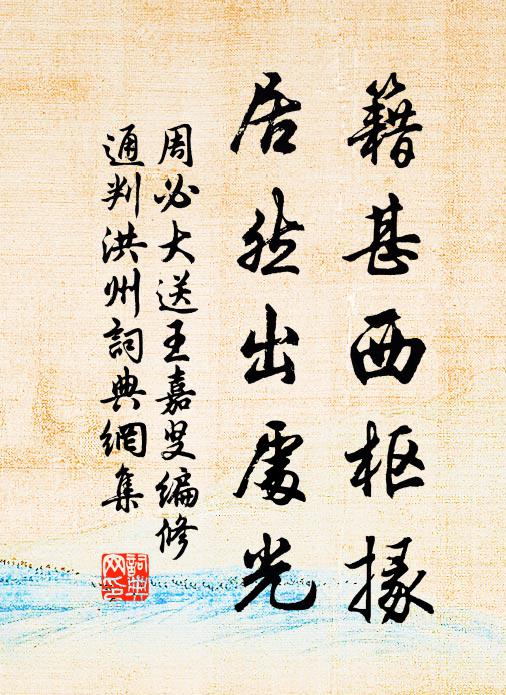 籍甚西枢掾
居然出處光
周必大送王嘉叟编修
通判洪州詞典網集